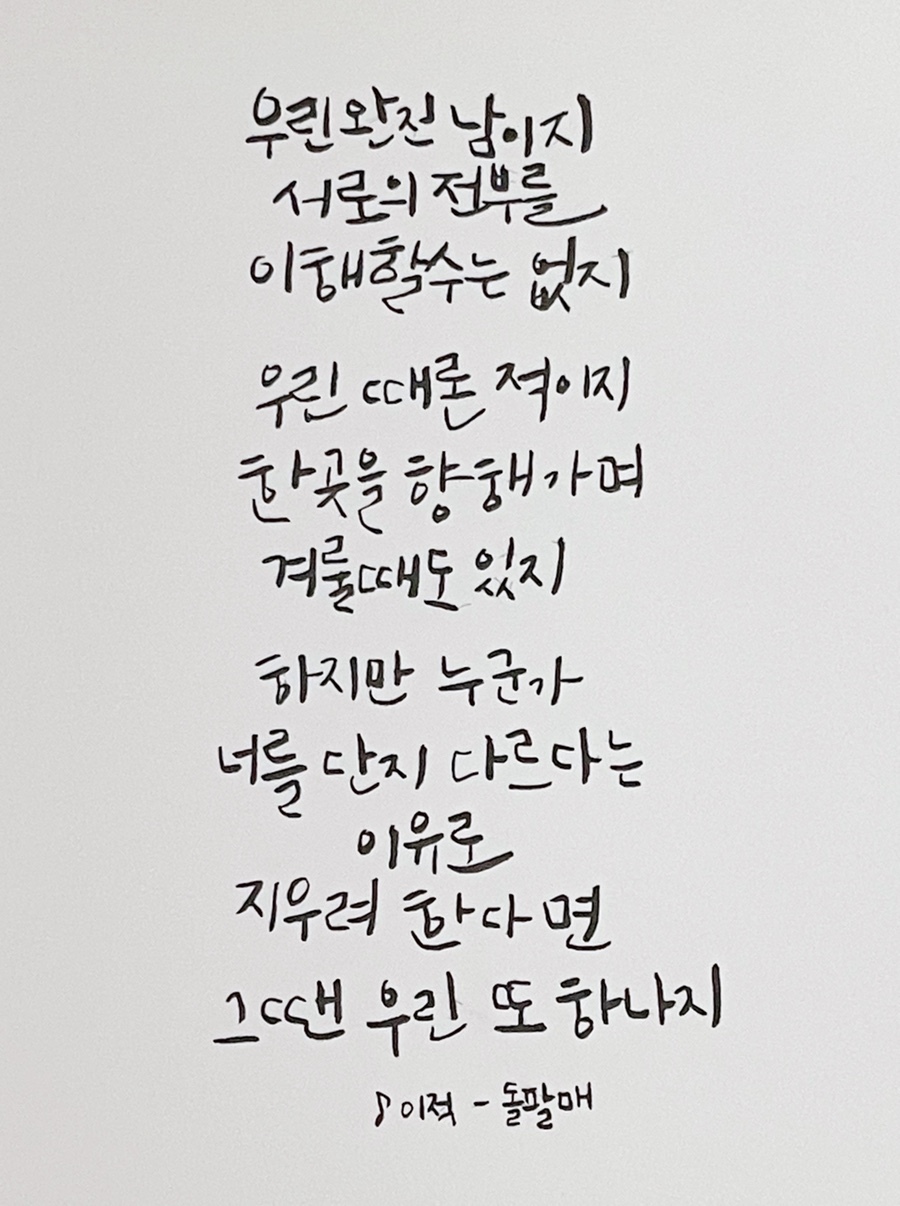 우린 완전 남이지
서로의 전부를
이해할수는 없지
우린 때론 적이지
한곳을 향해가며
겨룰때도 있지
하지만 누군가
너를 단지 다르다는
이유로
지우려 한다면
그땐 우린 또 하나지
♪이적 - 돌팔매